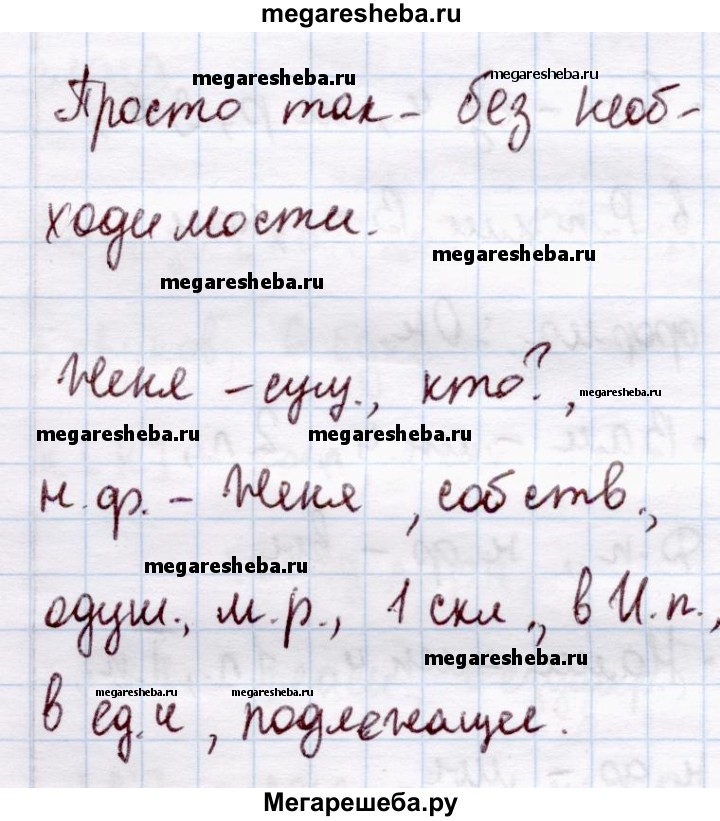 megaresheba.ru
megaresheba.ru megaresheba.ru
Просто так - без необ-
ходимости.
megaresheba.ru
megaresheba.ru
Женя - сущ., кто?,
megaresheba.ru
megaresheba.ru megaresheba.ru
н.ф. - Женя, собств.,
megaresheba.ru
одуш., м.р., 1 скл., в И.п.,
megaresheba.ru
megaresheba.ru megaresheba.ru
в ед.ч, подлежащее.
Мегарешеба.ру